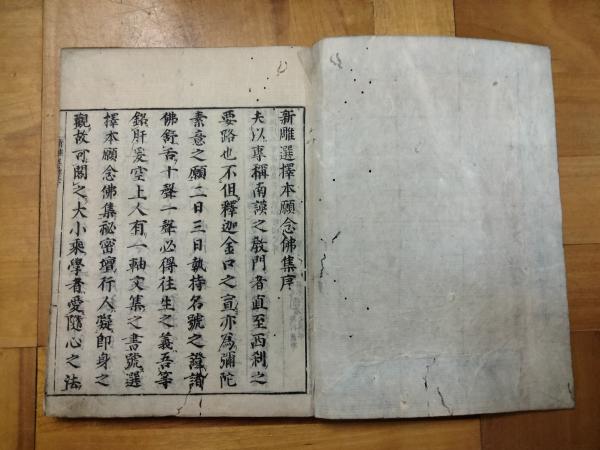 新雕選擇本願念佛集序
夫以專稱南謨之敎門者直至西利之
要路也不但釋迦金口之宣亦爲彌陀
素意之願二日三日執持名號之證諸
佛舒舌十聲一聲必得往生之義吾等
銘肝爰空上人有一軸文集之書號選
擇本願念佛集秘密壇行人凝卽身之
觀故可閣之大小乘學者愛隨心之法